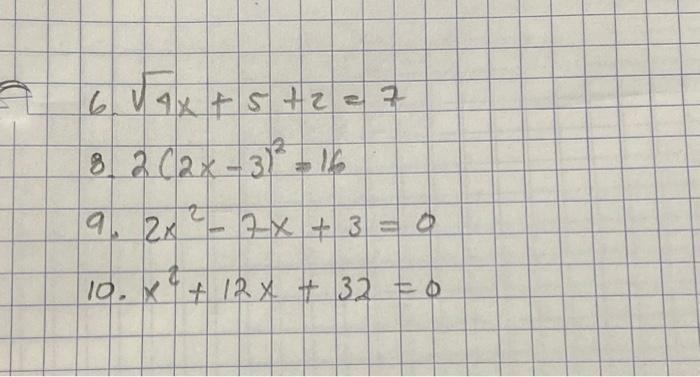 6. √4x + 5 + 2 = 7
8. 2(2x - 3)² = 16
9. 2x² - 7x + 3 = 0
10. x² + 12x + 32 = 0